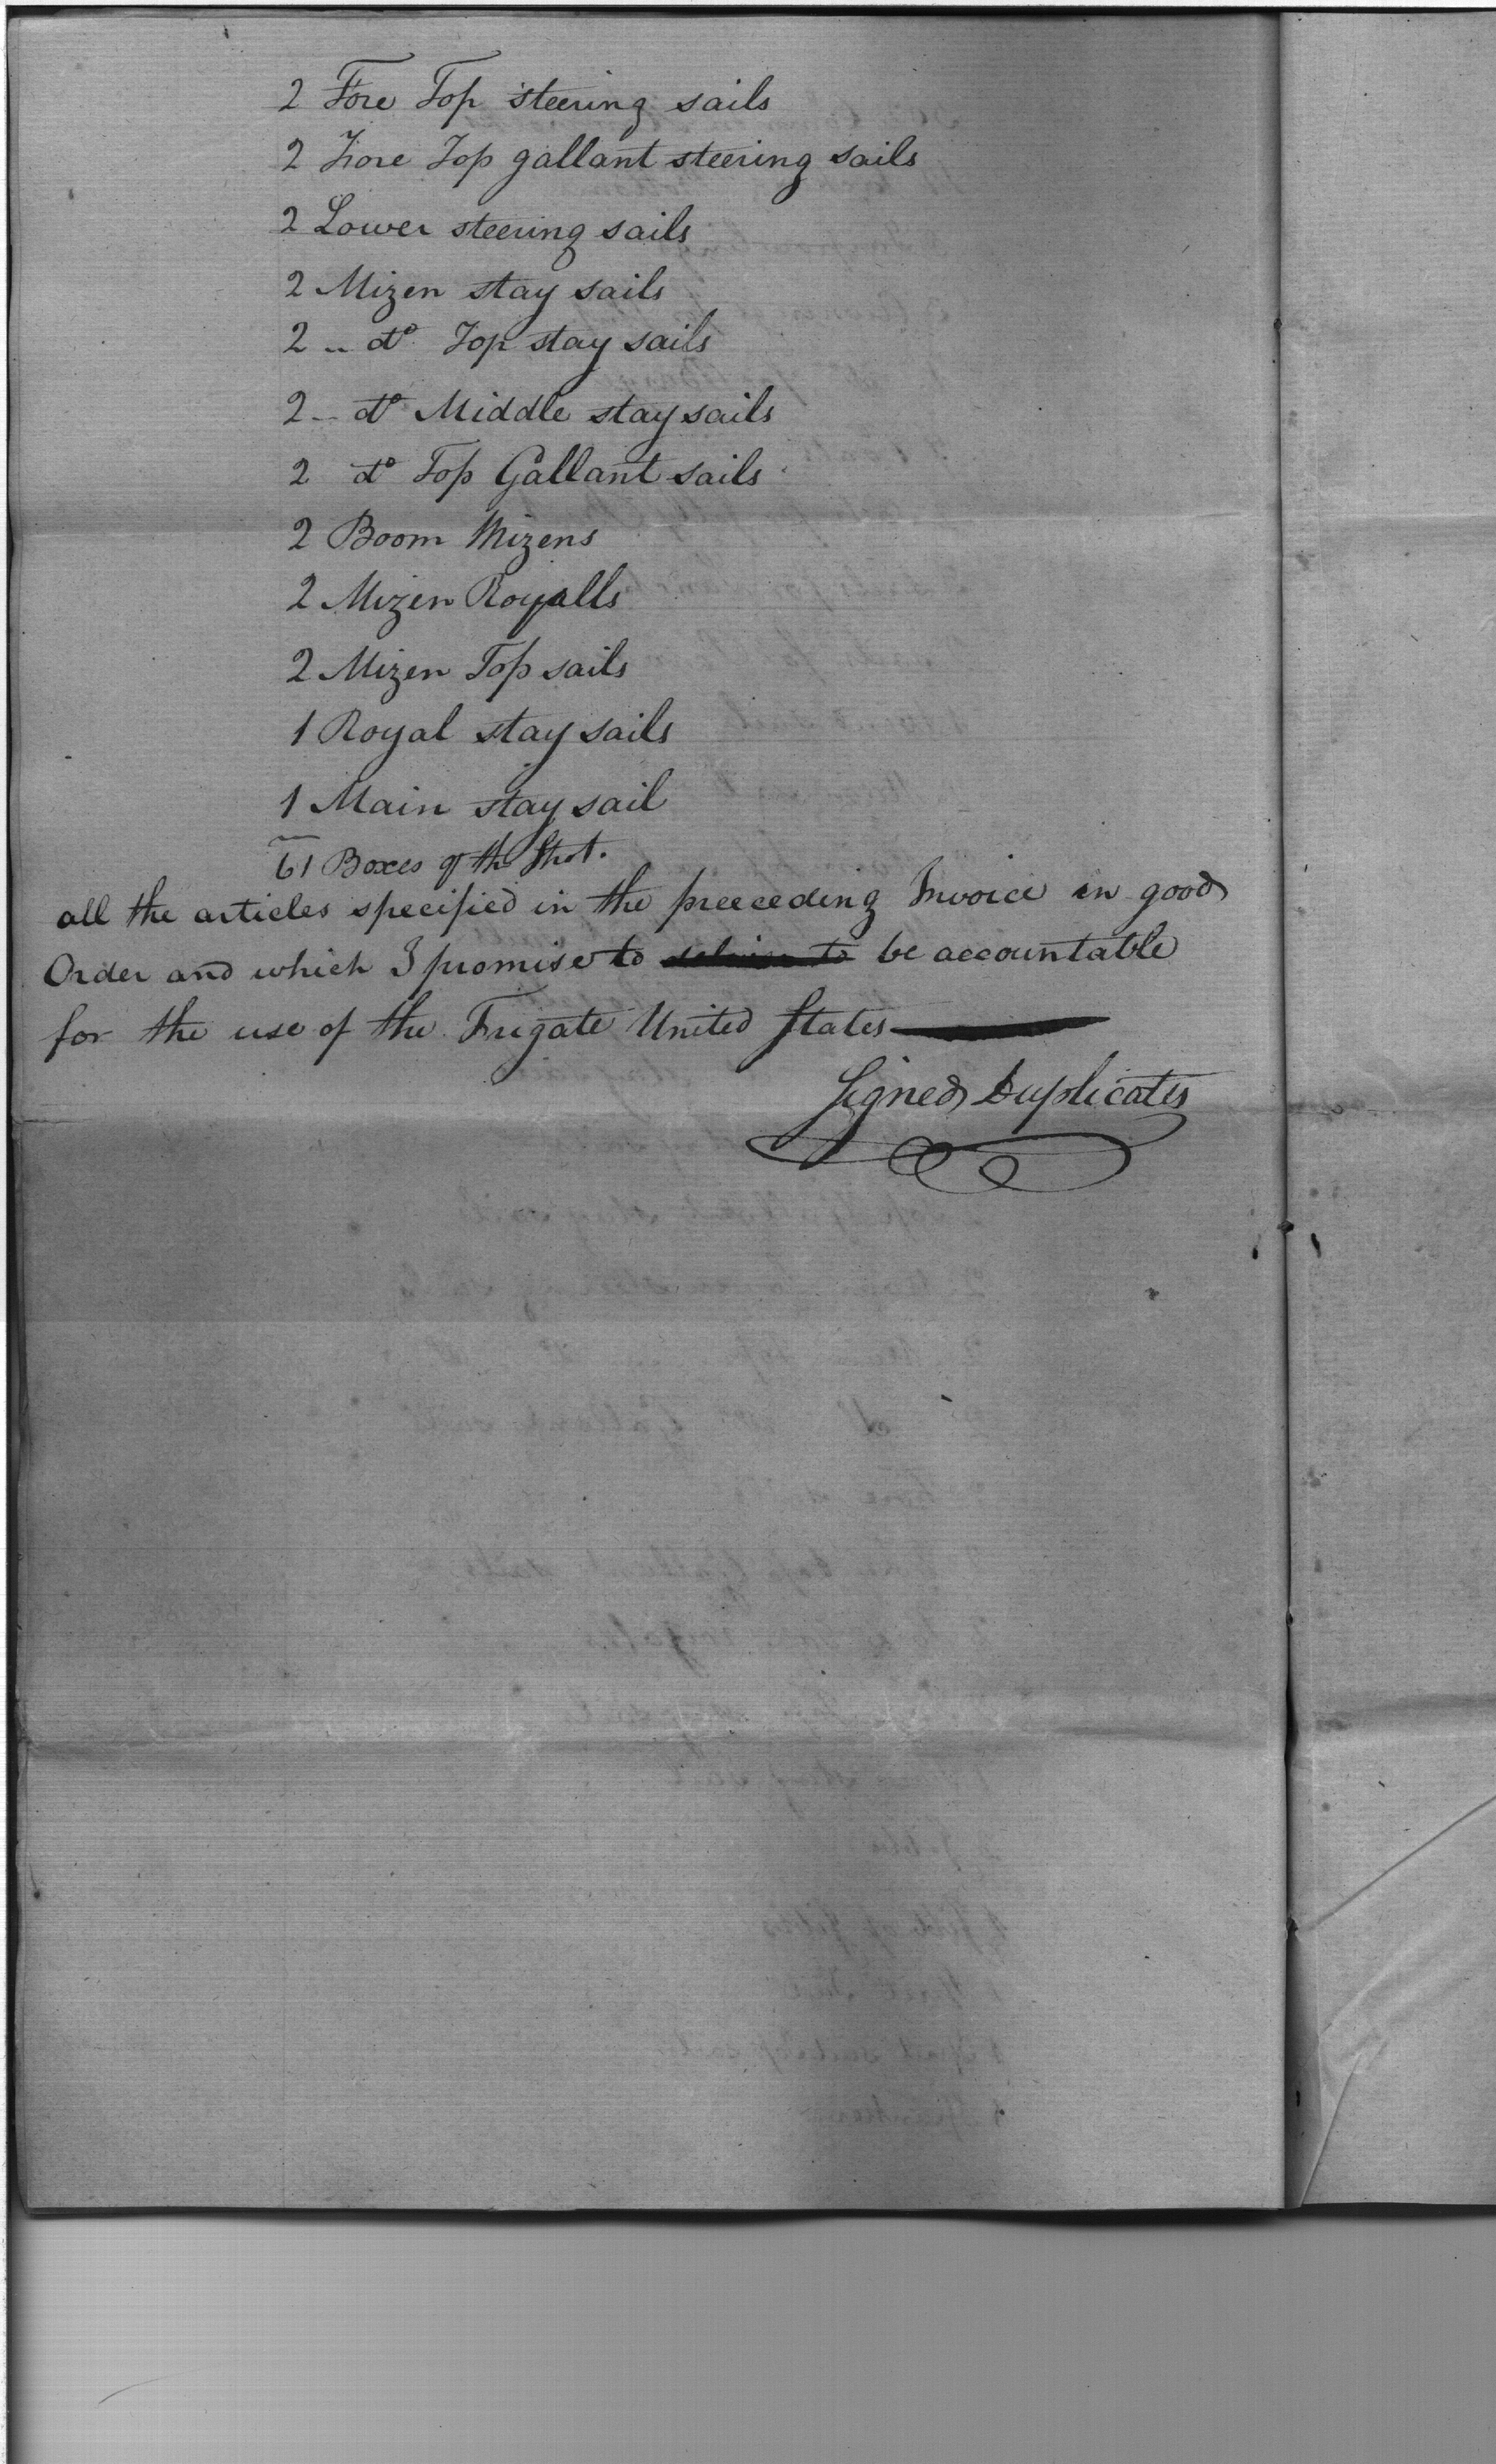 2 Fore Top steering sails
2 Fore Top gallant steering sails
2 Lower steering sails
2 Mizen stay sails
2 .. do Top stay sails
2 .. do Middle stay sails
2 do Top Gallant sails
2 Boom Mizens
2 Mizen Royalls
2 Mizen Top sails
1 Royal stay sails
1 Main stay sail
61 Boxes of the Shot.
all the articles specified in the preceeding Invoice in good
Order and which I promise to be accountable
for the use of the Frigate United States
Signed Duplicates